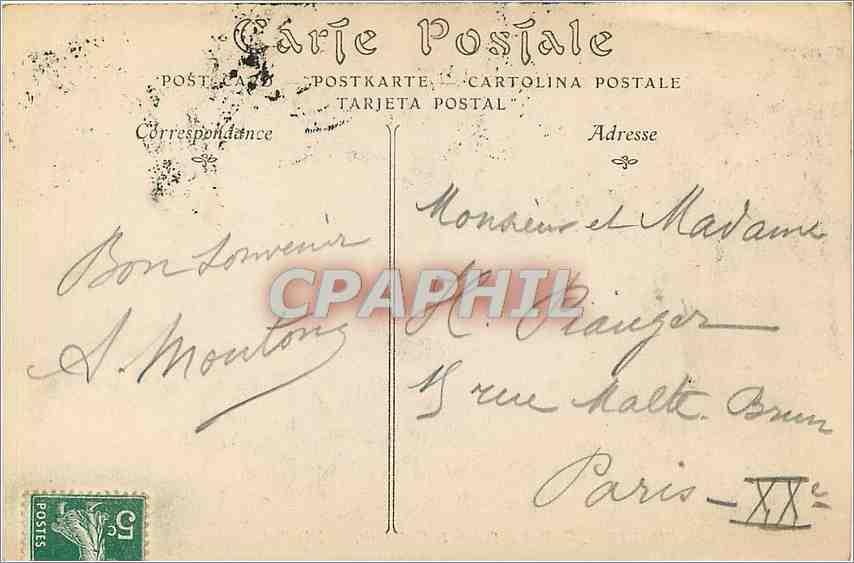 Carte Postale
POST CARD — POSTKARTE — CARTOLINA POSTALE
TARJETA POSTAL
Correspondance
Adresse
Bon Souvenir
A. Moutong
Monsieur et Madame
H. Piauger
15 rue Malte. Brun
Paris - XXe
CPAPHIL
5c
POSTES